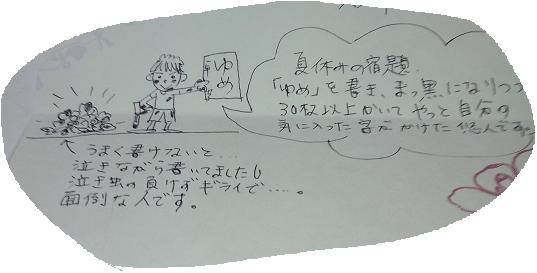 ゆめ
夏休みの宿題
「ゆめ」を書き、まっ黒になりつつ
30枚以上かいてやっと自分の
気に入った字がかけた
↑うまく書けないと…
泣きながら書いてましたし
泣き虫の負けずギライで……。
面倒な人です。